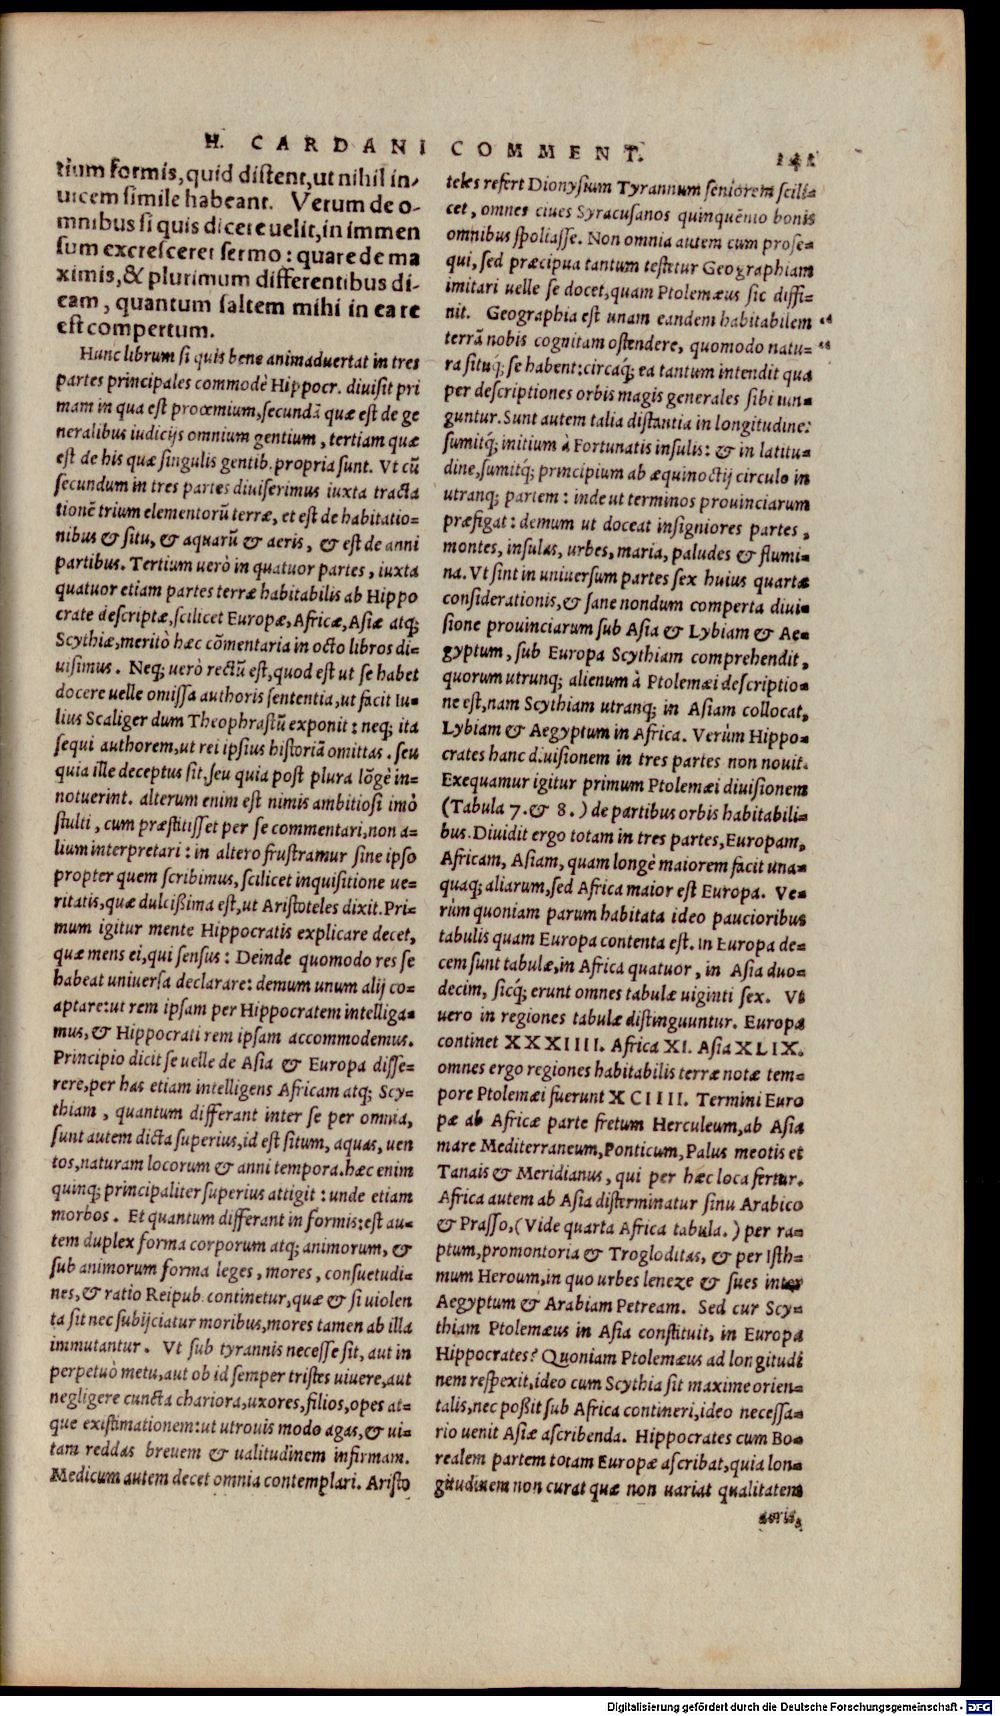 H. CARDANI COMMENT. 141
tium formis, quid distent, ut nihil in-
uicem simile habeant. Verum de o-
mnibus si quis dicere uelit, in immen
sum excresceret sermo: quare de ma
ximis, & plurimum differentibus di-
cam, quantum saltem mihi in ea re
est compertum.
Hunc librum si quis bene animaduertat in tres
partes principales commodè Hippocr. diuisit pri
mam in qua est prooemium, secundã quæ est de ge
neralibus iudicijs omnium gentium, tertiam quæ
est de his quæ singulis gentib. propria sunt. Vt cũ
secundum in tres partes diuiserimus iuxta tracta
tionẽ trium elementorũ terræ, et est de habitatio=
nibus & situ, & aquarũ & aeris, & est de anni
partibus. Tertium uerò in quatuor partes, iuxta
quatuor etiam partes terræ habitabilis ab Hippo
crate descriptæ, scilicet Europæ, Africæ, Asiæ atq;
Scythiæ, meritò hæc cõmentaria in octo libros di-
uisimus. Neq; uerò rectũ est, quod est ut se habet
docere uelle omissa authoris sententia, ut facit Iu=
lius Scaliger dum Theophrastũ exponit: neq; ita
sequi authorem, ut rei ipsius historiã omittas. seu
quia ille deceptus sit, seu quia post plura lõgè in=
notuerint. alterum enim est nimis ambitiosi imò
stulti, cum præstitisset per se commentari, non a-
lium interpretari: in altero frustramur sine ipso
propter quem scribimus, scilicet inquisitione ue-
ritatis, quæ dulcißima est, ut Aristoteles dixit. Pri-
mum igitur mente Hippocratis explicare decet,
quæ mens ei, qui sensus: Deinde quomodo res se
habeat uniuersa declarare: demum unum alij co-
aptare: ut rem ipsam per Hippocratem intelliga=
mus, & Hippocrati rem ipsam accommodemus.
Principio dicit se uelle de Asia & Europa disse-
rere, per has etiam intelligens Africam atq; Scy-
thiam, quantum differant inter se per omnia,
sunt autem dicta superius, id est situm, aquas, uen
tos, naturam locorum & anni tempora. hæc enim
quinq; principaliter superius attigit: unde etiam
morbos. Et quantum differant in formis: est au-
tem duplex forma corporum atq; animorum, &
sub animorum forma leges, mores, consuetudi-
nes, & ratio Reipub. continetur, quæ & si uiolen
ta sit nec subijciatur moribus, mores tamen ab illa
immutantur. Vt sub tyrannis necesse sit, aut in
perpetuò metu, aut ob id semper tristes uiuere, aut
negligere cuncta chariora, uxores, filios, opes at-
que existimationem: ut utrouis modo agas, & ui-
tam reddas breuem & ualitudinem infirmam.
Medicum autem decet omnia contemplari. Aristo
teles refert Dionysium Tyrannum seniorem scili=
cet, omnes ciues Syracusanos quinquẽnio bonis
omnibus spoliasse. Non omnia autem cum prose=
qui, sed præcipua tantum testetur Geographiam
imitari uelle se docet, quam Ptolemæus sic diffi-
nit. Geographia est unam eandem habitabilem “
terrã nobis cognitam ostendere, quomodo natu= “
ra situq́; se habent: circaq́; ea tantum intendit quæ
per descriptiones orbis magis generales sibi iun=
guntur. Sunt autem talia distantia in longitudine:
sumitq́; initium à Fortunatis insulis: & in latitu=
dine, sumitq́; principium ab æquinoctij circulo in
utranq; partem: inde ut terminos prouinciarum
præfigat: demum ut doceat insigniores partes,
montes, insulas, urbes, maria, paludes & flumi-
na. Vt sint in uniuersum partes sex huius quartæ
considerationis, & sane nondum comperta diui=
sione prouinciarum sub Asia & Lybiam & Ae=
gyptum, sub Europa Scythiam comprehendit,
quorum utrunq; alienum à Ptolemæi descriptio=
ne est, nam Scythiam utranq; in Asiam collocat,
Lybiam & Aegyptum in Africa. Verùm Hippo=
crates hanc diuisionem in tres partes non nouit.
Exequamur igitur primum Ptolemæi diuisionem
(Tabula 7. & 8.) de partibus orbis habitabili=
bus. Diuidit ergo totam in tres partes, Europam,
Africam, Asiam, quam longè maiorem facit una=
quaq; aliarum, sed Africa maior est Europa. Ve=
rùm quoniam parum habitata ideo paucioribus
tabulis quam Europa contenta est. In Europa de=
cem sunt tabulæ, in Africa quatuor, in Asia duo=
decim, sicq́; erunt omnes tabulæ uiginti sex. Vt
uero in regiones tabulæ distinguuntur. Europa
continet XXXIIII. Africa XI. Asia XLIX.
omnes ergo regiones habitabilis terræ notæ tem=
pore Ptolemæi fuerunt XCIIII. Termini Euro
pæ ab Africæ parte fretum Herculeum, ab Asia
mare Mediterraneum, Ponticum, Palus meotis et
Tanais & Meridianus, qui per hæc loca fertur.
Africa autem ab Asia disterminatur sinu Arabico
& Prasso, (Vide quarta Africa tabula.) per ra=
ptum, promontoria & Trogloditas, & per Isth=
mum Heroum, in quo urbes leneze & sues inter
Aegyptum & Arabiam Petream. Sed cur Scy=
thiam Ptolemæus in Asia constituit, in Europa
Hippocrates? Quoniam Ptolemæus ad longitudi
nem respexit, ideo cum Scythia sit maxime orien=
talis, nec poßit sub Africa contineri, ideo necessa=
rio uenit Asiæ ascribenda. Hippocrates cum Bo=
realem partem totam Europæ ascribat, quia lon=
gitudinem non curat quæ non uariat qualitatem
aeris,
Digitalisierung gefördert durch die Deutsche Forschungsgemeinschaft - DFG